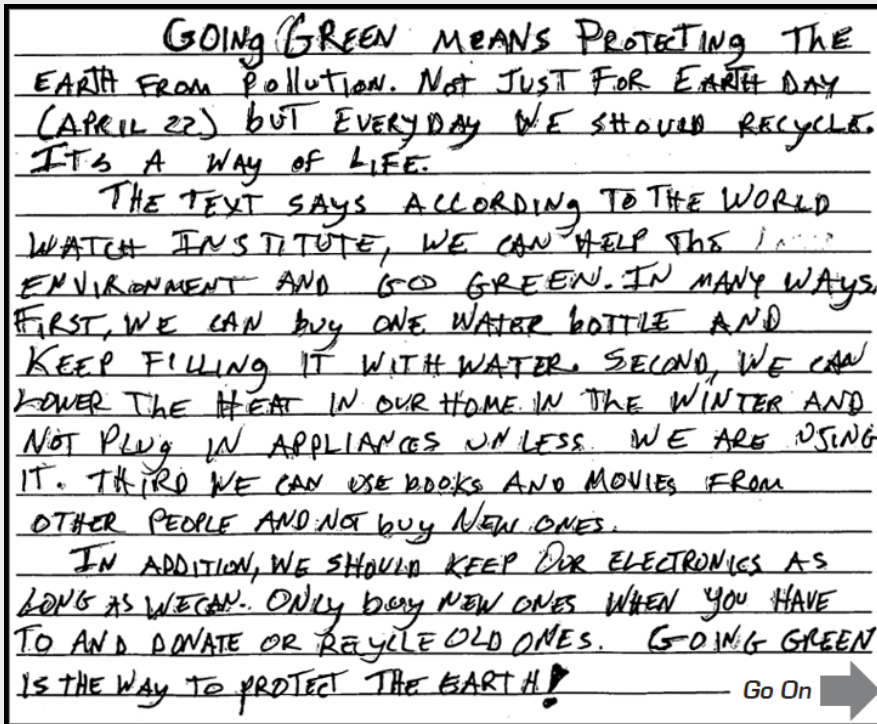 GOING GREEN MEANS PROTECTING THE
EARTH FROM POLLUTION. NOT JUST FOR EARTH DAY
(APRIL 22) BUT EVERYDAY WE SHOULD RECYCLE.
ITS A WAY OF LIFE.
THE TEXT SAYS ACCORDING TO THE WORLD
WATCH INSTITUTE, WE CAN HELP THE
ENVIRONMENT AND GO GREEN. IN MANY WAYS.
FIRST, WE CAN buy ONE WATER BOTTLE AND
KEEP FILLING IT WITH WATER. SECOND, WE CAN
LOWER THE HEAT IN OUR HOME IN THE WINTER AND
NOT PLUG IN APPLIANCES UNLESS WE ARE USING
IT. THIRD WE CAN USE BOOKS AND MOVIES FROM
OTHER PEOPLE AND NOT buy NEW ONES.
IN ADDITION, WE SHOULD KEEP OUR ELECTRONICS AS
LONG AS WE CAN. ONLY buy NEW ONES WHEN YOU HAVE
TO AND DONATE OR RECYCLE OLD ONES. GOING GREEN
IS THE WAY TO PROTECT THE EARTH!
Go On